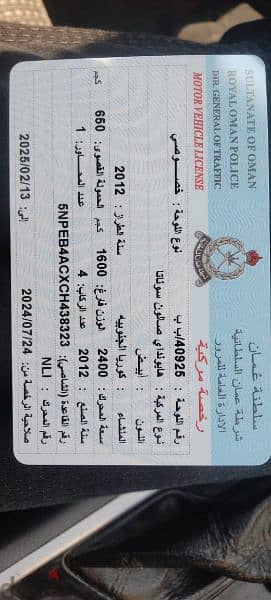 SULTANATE OF OMAN
ROYAL OMAN POLICE
DIR. GENERAL OF TRAFFIC
MOTOR VEHICLE LICENSE
سلطنة عمان
شرطة عمان السلطانية
الإدارة العامة للمرور
رخصة مركبة
رقم اللوحة : 40926/ب ب نوع اللوحة : خصوصي
نوع المركبة : هيونداي صالون سوناتا
اللون : أبيض
المنشاء : كوريا الجنوبيه سنة الطراز : 2012
سعة المحرك: 2400 الوزن فارغ: 1600 كجم الحمولة القصوى: 650 كجم
سنة الصنع : 2012 عدد الركاب: 4 عدد المحاور: 1
رقم القاعدة (الشاصي): 5NPEB4ACXCH438323
رقم المحرك : NLI
صلاحية الرخصة من: 2024/07/24 إلى: 2025/02/13